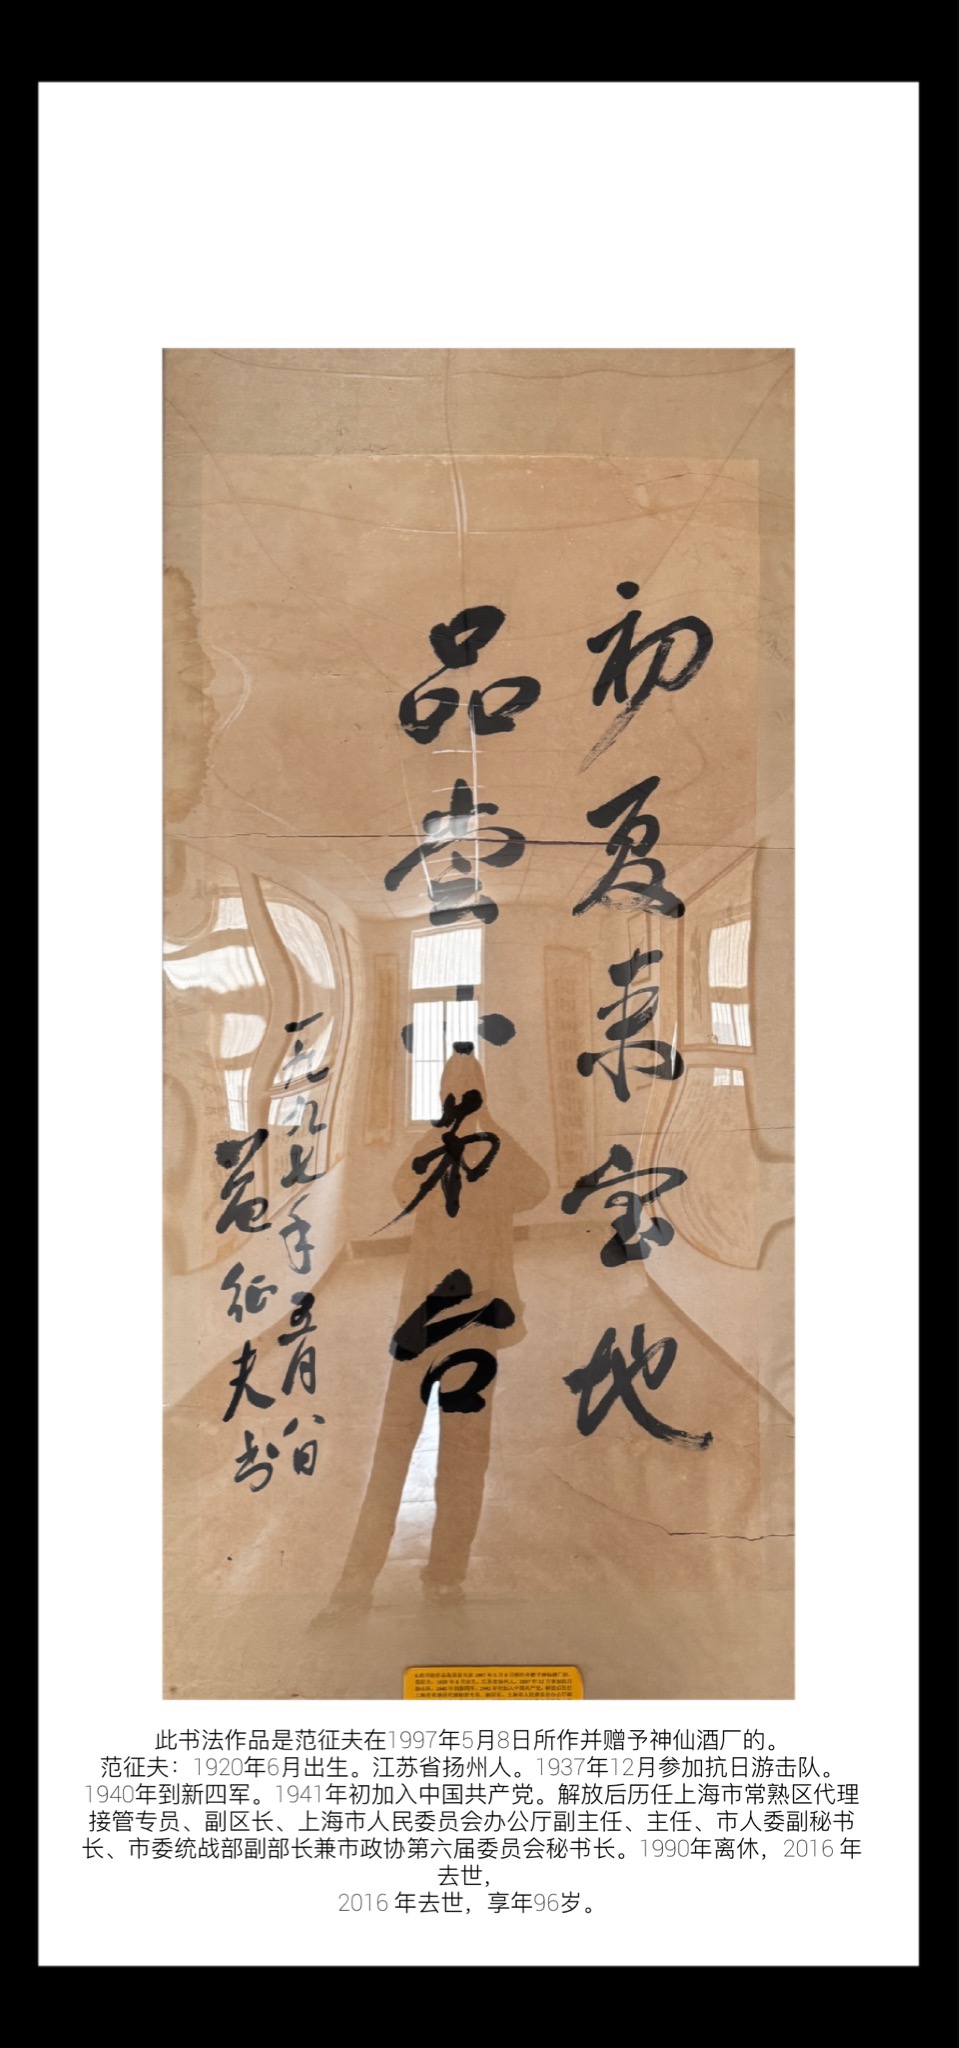 初夏来宝地
品尝小茅台
一九九七年五月八日
范征夫书
此书法作品是范征夫在1997年5月8日所作并赠予神仙酒厂的。
范征夫：1920年6月出生。江苏省扬州人。1937年12月参加抗日游击队。
1940年到新四军。1941年初加入中国共产党。解放后历任上海市常熟区代理
接管专员、副区长、上海市人民委员会办公厅副主任、主任、市人委副秘书
长、市委统战部副部长兼市政协第六届委员会秘书长。1990年离休，2016 年
去世，
2016 年去世，享年96岁。